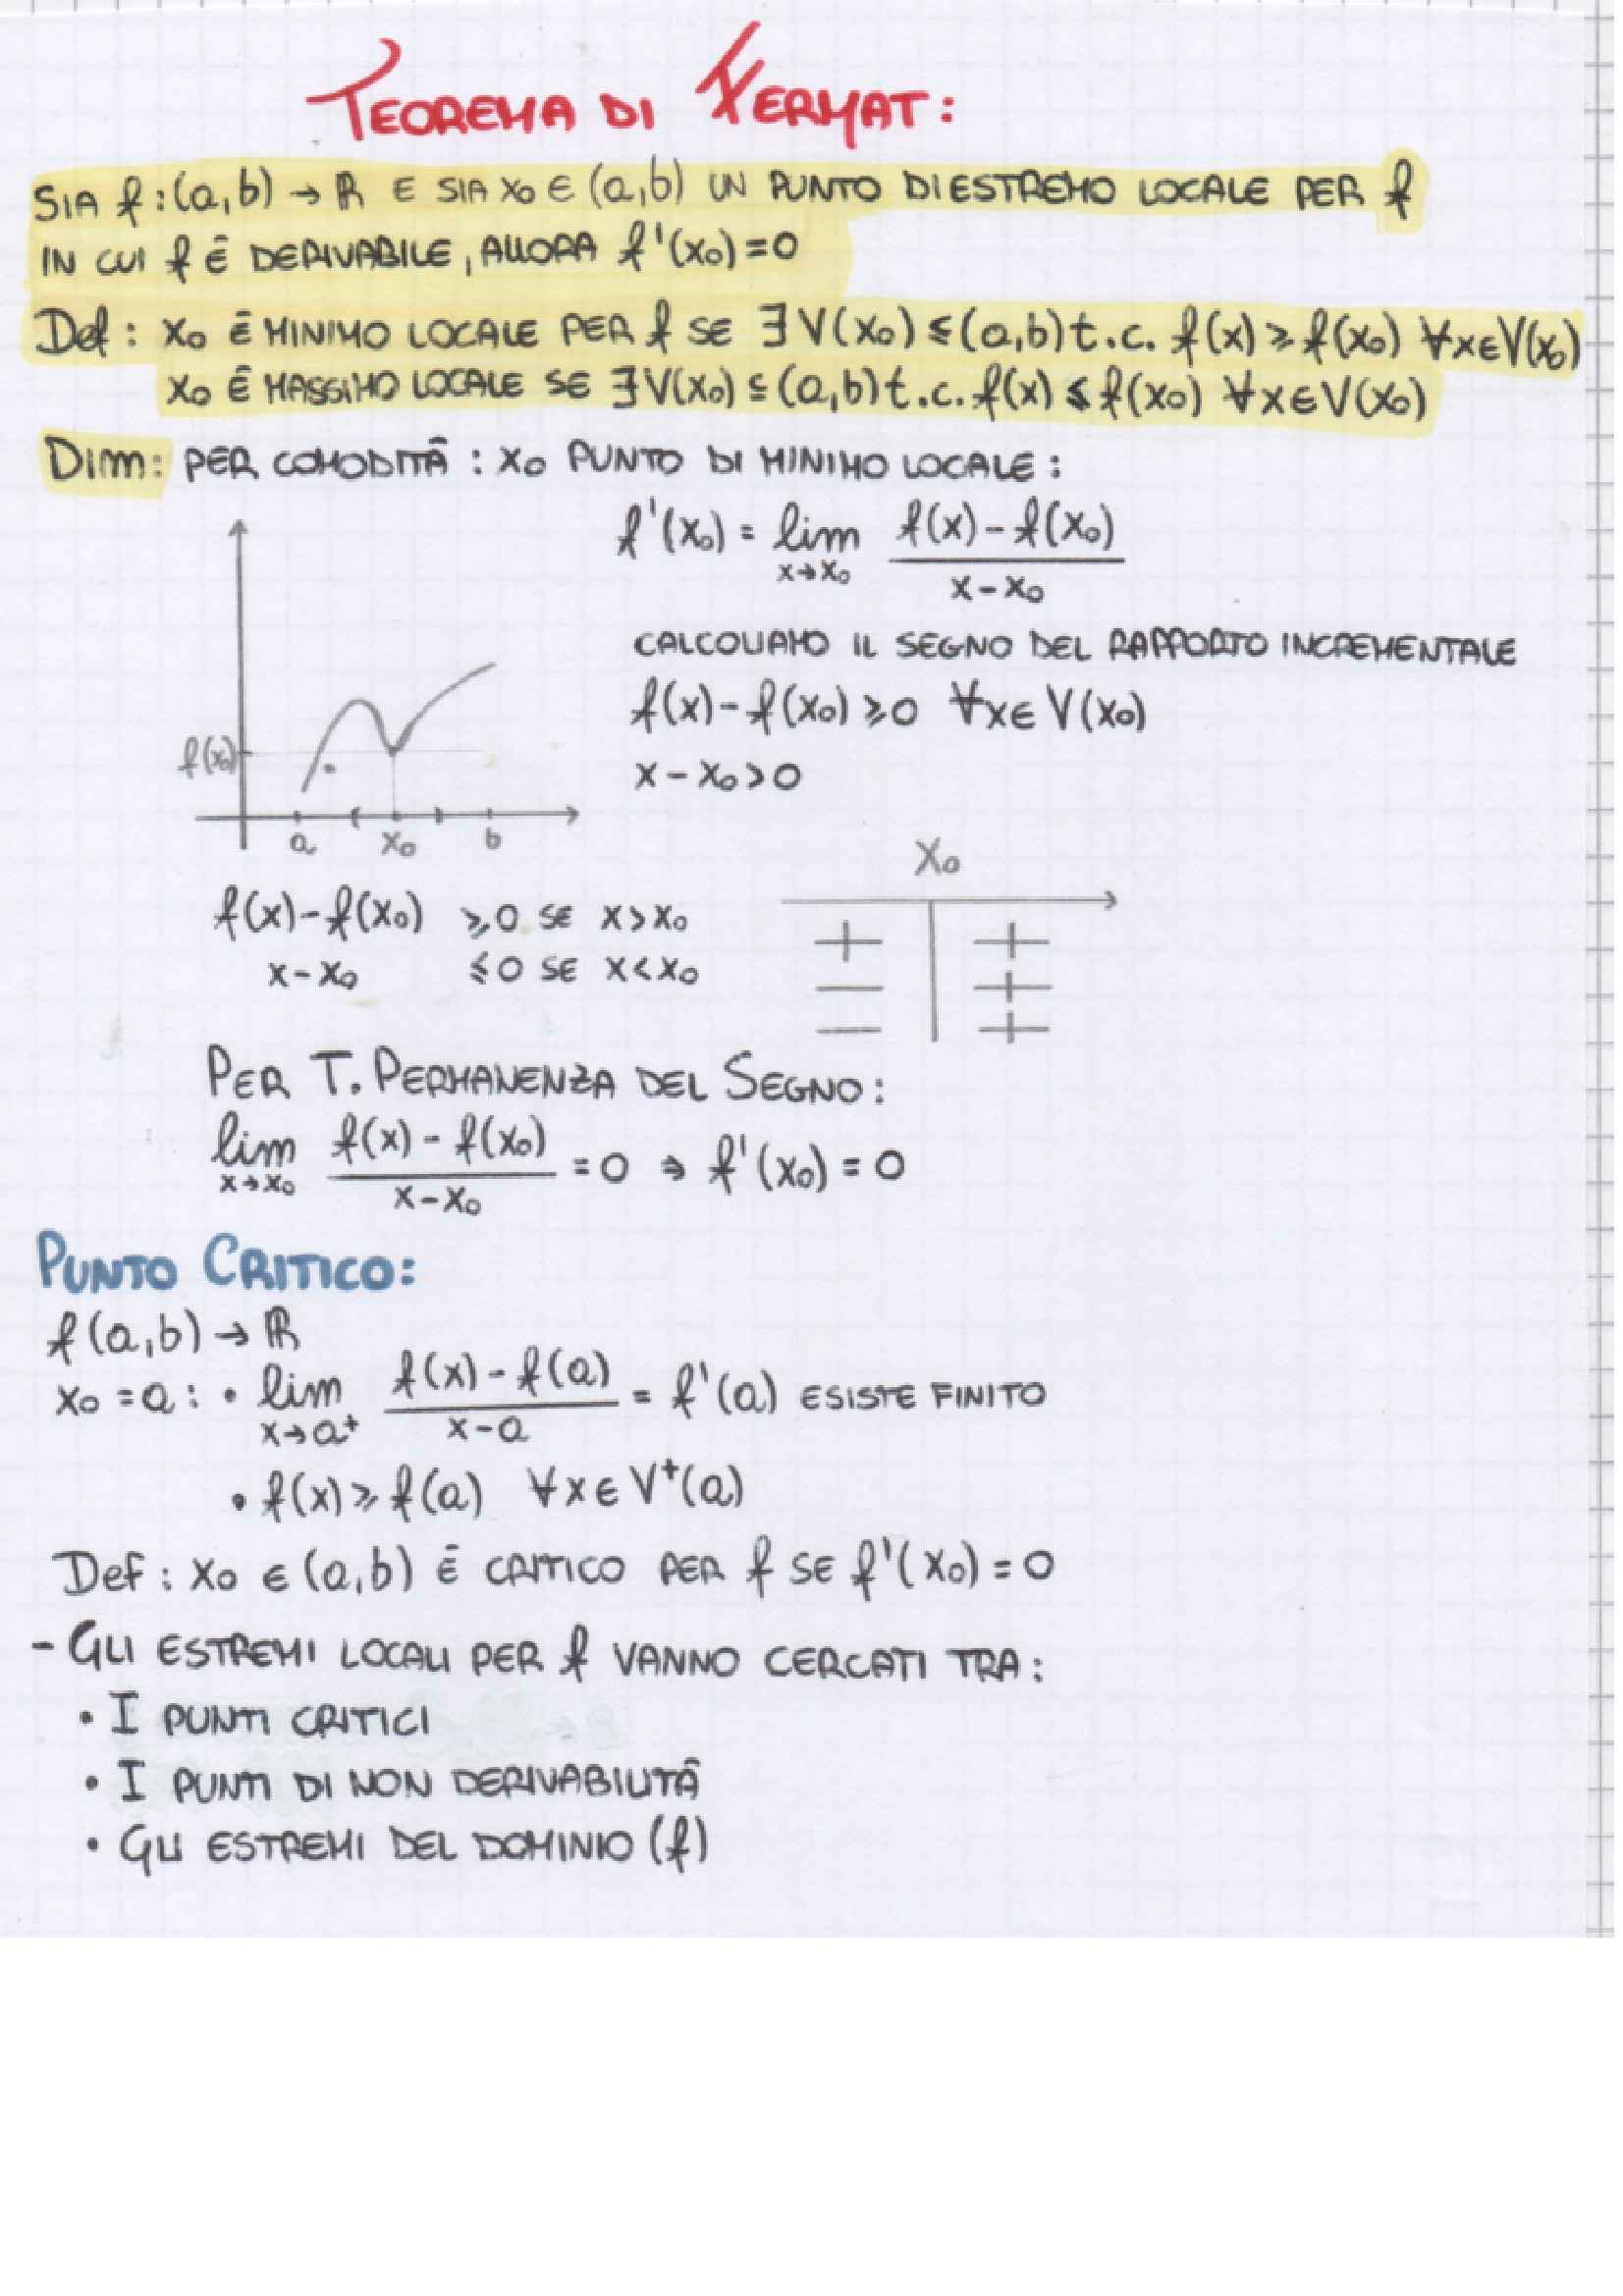 TEOREMA DI FERMAT:
SIA f:(a,b) → ℝ E SIA x₀ ∈ (a,b) UN PUNTO DI ESTREMO LOCALE PER f
IN CUI f È DERIVABILE, ALLORA f'(x₀)=0
Def: x₀ È MINIMO LOCALE PER f SE ∃ V(x₀) ⊆ (a,b) t.c. f(x) ≥ f(x₀) ∀x∈V(x₀)
x₀ È MASSIMO LOCALE SE ∃ V(x₀) ⊆ (a,b) t.c. f(x) ≤ f(x₀) ∀x∈V(x₀)
Dim: PER COMODITÀ: x₀ PUNTO DI MINIMO LOCALE:
f'(x₀) = lim x→x₀ (f(x) - f(x₀)) / (x - x₀)
CALCOLIAMO IL SEGNO DEL RAPPORTO INCREMENTALE
f(x) - f(x₀) ≥ 0 ∀x∈V(x₀)
x - x₀ > 0
f(x₀)
a x₀ b
x₀
f(x) - f(x₀) ≥ 0 SE x > x₀
x - x₀ ≤ 0 SE x < x₀
+ +
− +
− +
PER T. PERMANENZA DEL SEGNO:
lim x→x₀ (f(x) - f(x₀)) / (x - x₀) = 0 ⇒ f'(x₀) = 0
PUNTO CRITICO:
f(a,b) → ℝ
x₀ = a: • lim x→a⁺ (f(x) - f(a)) / (x - a) = f'(a) ESISTE FINITO
• f(x) ≥ f(a) ∀x∈V⁺(a)
Def: x₀ ∈ (a,b) È CRITICO PER f SE f'(x₀) = 0
- GLI ESTREMI LOCALI PER f VANNO CERCATI TRA:
• I PUNTI CRITICI
• I PUNTI DI NON DERIVABILITÀ
• GLI ESTREMI DEL DOMINIO (f)